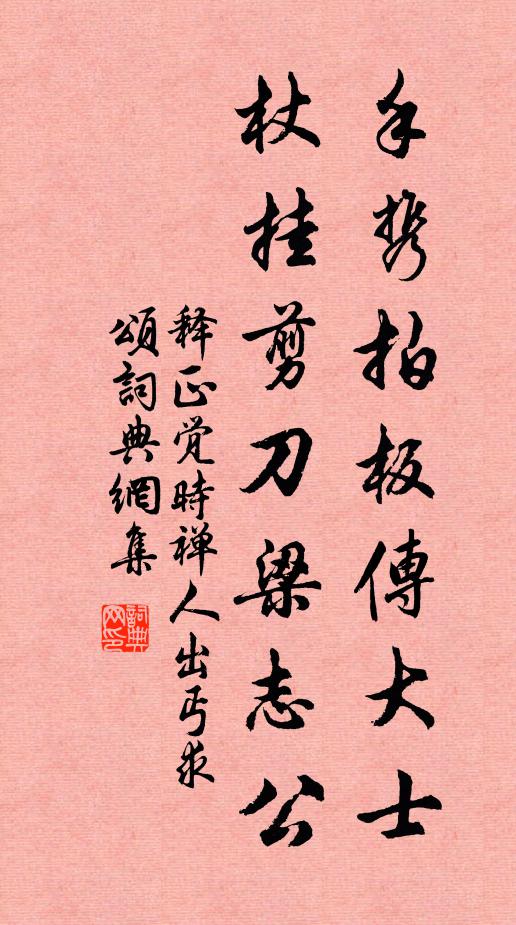 手携拍板傅大士
杖挂剪刀梁志公
释正觉時禅人出丐求
頌詞典網集
詞典網印